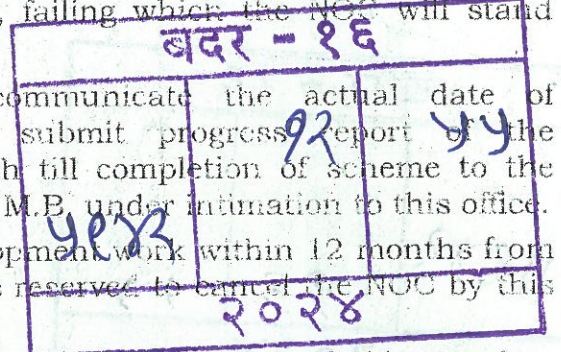 , failing which the NOC will stand
बदर - १६
communicate the actual date of
submit progress report of the
१२ ५५
h till completion of scheme to the
M.B. under intimation to this office.
opment work within 12 months from
s reserved to cancel the NOC by this
२०२४